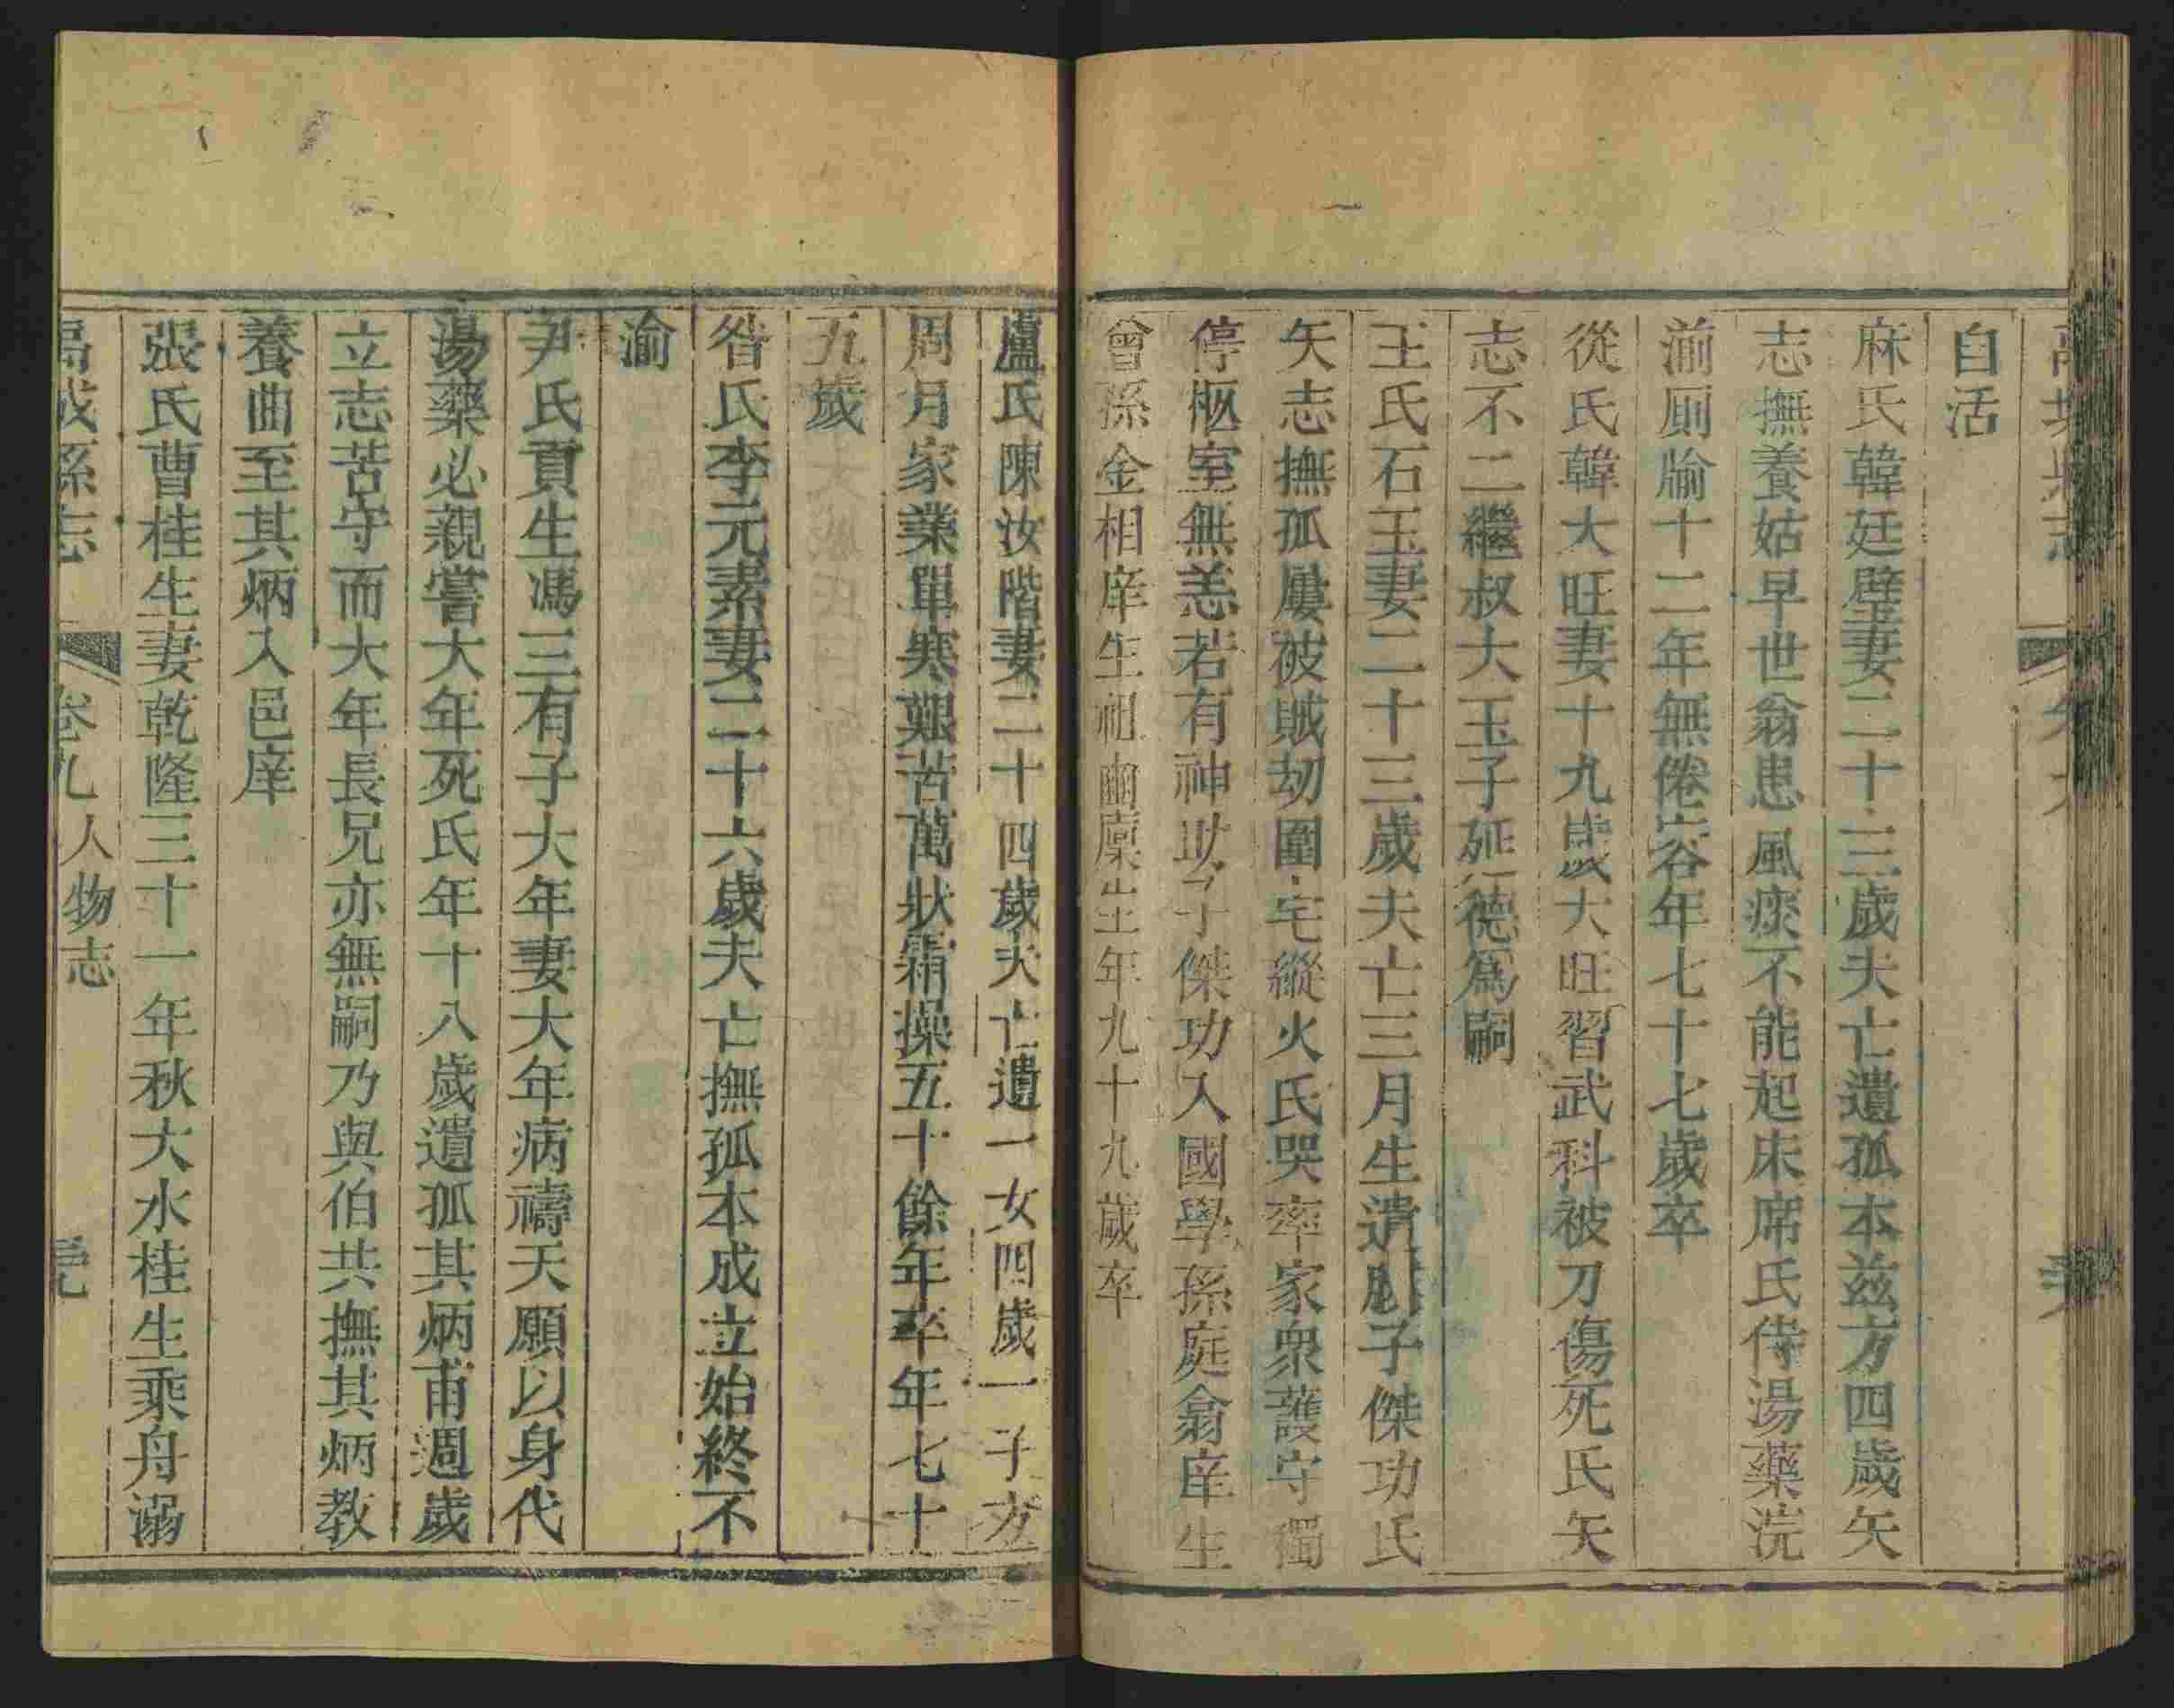 自活
麻氏韓廷璧妻二十三歲夫亡遺孤本兹方四歲矢
志撫養姑早世翁患風痰不能起床席氏侍湯藥浣
湔厠牏十二年無倦容年七十七歲卒
從氏韓大旺妻十九歲大旺習武科被刀傷死氏矢
志不二繼叔大玉子延德爲嗣
王氏石玉妻二十三歲夫亡三月生遺腹子傑功氏
矢志撫孤屢被賊刧圍宅縱火氏哭率家衆護守獨
停柩室無恙若有神助子傑功入國學孫庭翁庠生
曾孫金相庠生祖幽廩生年九十九歲卒
盧氏陳汝階妻二十四歲夫亡遺一女四歲一子方
周月家業單寒艱苦萬狀霜操五十餘年卒年七十
五歲
昝氏李元素妻二十六歲夫亡撫孤本成立始終不
渝
尹氏貢生馮三有子大年妻大年病禱天願以身代
湯藥必親嘗大年死氏年十八歲遺孤其炳甫週歲
立志苦守而大年長兄亦無嗣乃與伯共撫其炳教
養曲至其炳入邑庠
張氏曹桂生妻乾隆三十一年秋大水桂生乘舟溺
縣志 卷九 人物志